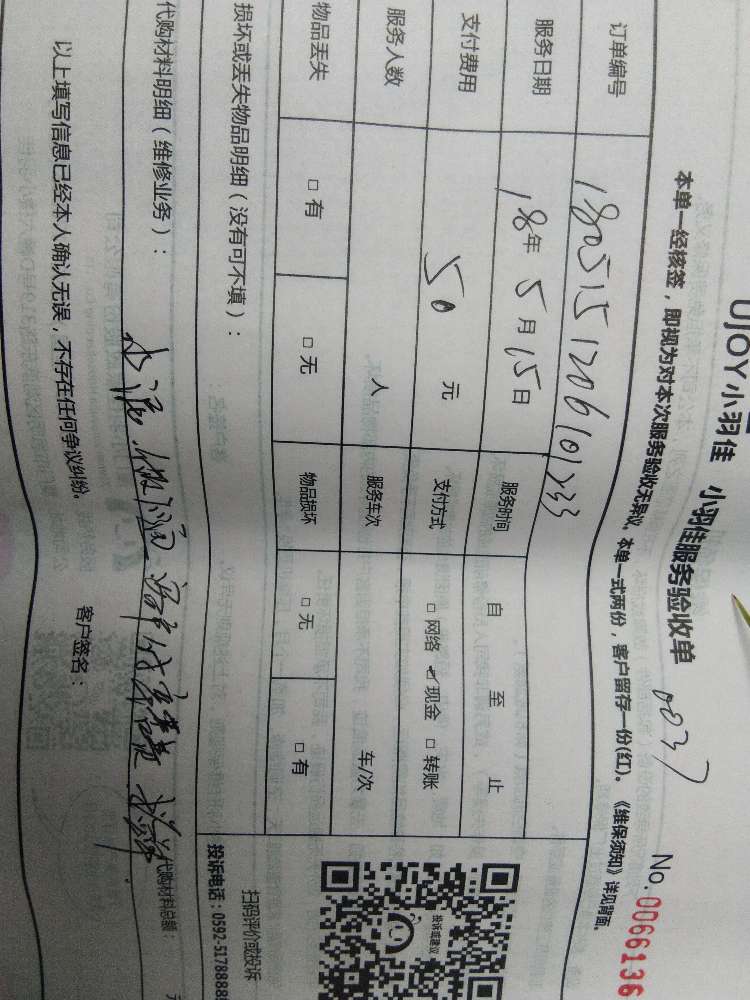 UJOY小羽佳 小羽佳服务验收单 0037 No.0066136
本单一经核签，即视为对本次服务验收无异议。本单一式两份，客户留存一份(红)。《维保须知》详见背面。
订单编号 1805151206101233
服务日期 18年5月15日 服务时间 自 至 止
支付费用 50 元 支付方式 □网络 ☑现金 □转账
服务人数 人 服务车次 车/次
物品丢失 □有 □无 物品损坏 □无 □有
投诉或建议
扫码评价或投诉
损坏或丢失物品明细（没有可不填）： 投诉电话：0592-5178888
代购材料明细（维修业务）： 水泥 代购材料总额： 元
以上填写信息已经本人确认无误，不存在任何争议纠纷。 客户签名：